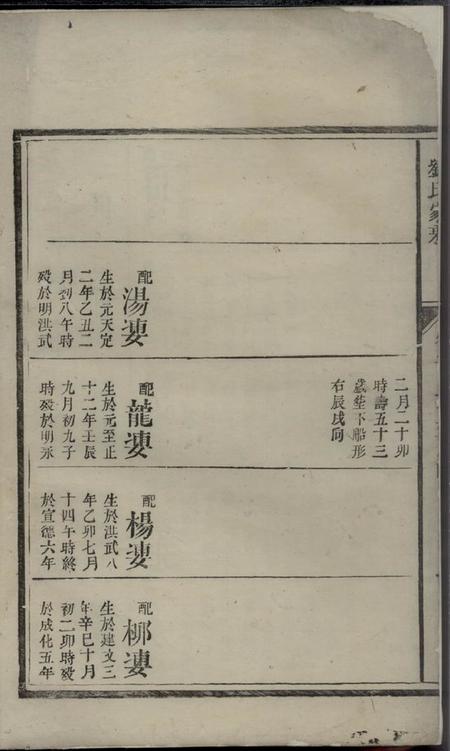 二月二十卯
時壽五十三
歲塟下船形
右辰戌向
配湯婁
生於元天定
二年乙丑二
月初八午時
歿於明洪武
配龍婁
生於元至正
十二年壬辰
九月初九子
時歿於明永
配楊婁
生於洪武八
年乙卯七月
十四午時終
於宣德六年
配柳婁
生於建文三
年辛巳十月
初二卯時歿
於成化五年